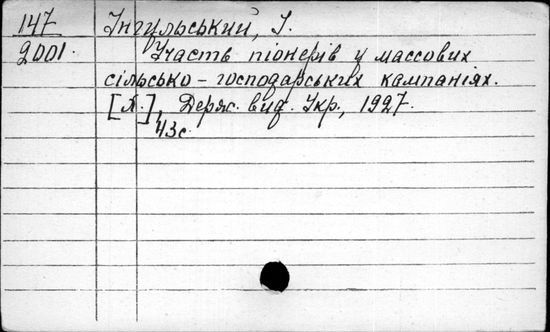 147 Інгульський, І.
2001. Участь піонерів у массових
сільсько-господарських кампаніях.
[Х.], Держ. вид. Укр., 1927.
43с.